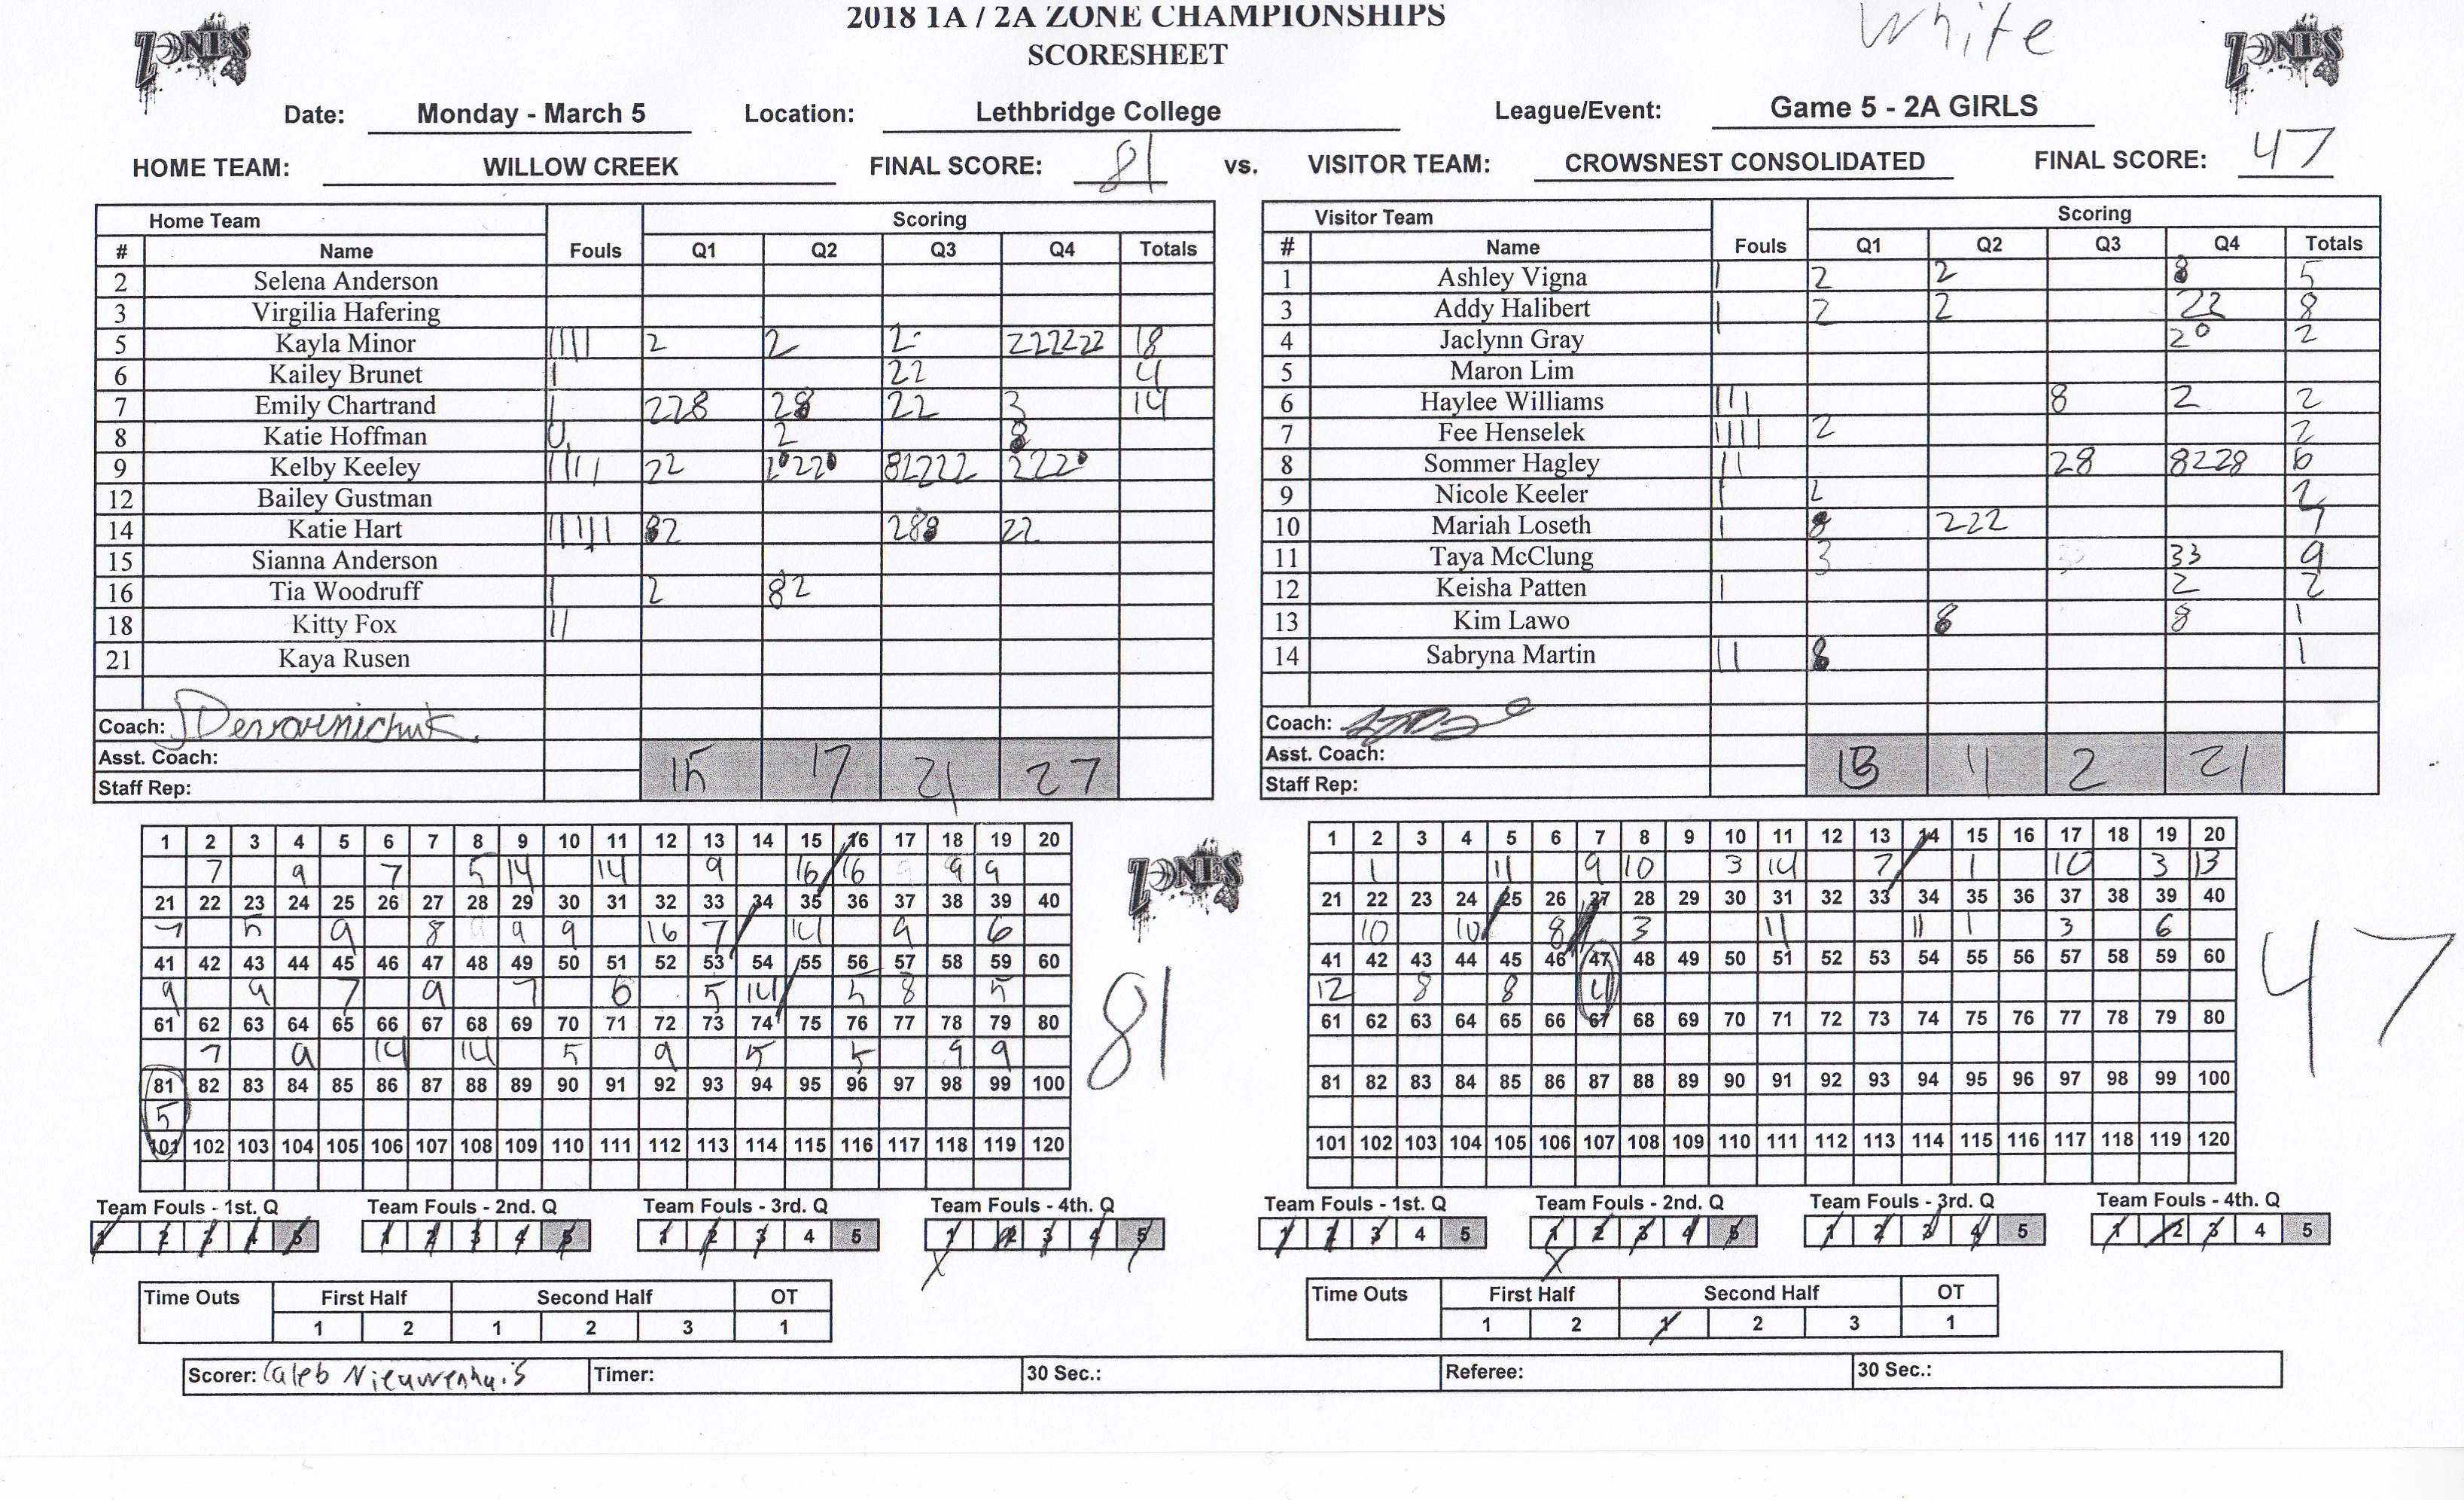 2018 1A / 2A ZONE CHAMPIONSHIPS
SCORESHEET
White
ZONES
ZONES
Date: Monday - March 5 Location: Lethbridge College League/Event: Game 5 - 2A GIRLS
HOME TEAM: WILLOW CREEK FINAL SCORE: 81 vs. VISITOR TEAM: CROWSNEST CONSOLIDATED FINAL SCORE: 47
Home Team Fouls Scoring
# Name Q1 Q2 Q3 Q4 Totals
2 Selena Anderson
3 Virgilia Hafering
5 Kayla Minor 2 2 2 222222 18
6 Kailey Brunet 22 4
7 Emily Chartrand 228 28 22 3 14
8 Katie Hoffman 2 8
9 Kelby Keeley 22
12 Bailey Gustman
14 Katie Hart 82 288 22
15 Sianna Anderson
16 Tia Woodruff 2 82
18 Kitty Fox
21 Kaya Rusen
Coach:
Asst. Coach:
Staff Rep:
15 17 21 27
Visitor Team Fouls Scoring
# Name Q1 Q2 Q3 Q4 Totals
1 Ashley Vigna 2 2 8 5
3 Addy Halibert 2 2 22 8
4 Jaclynn Gray 20 2
5 Maron Lim
6 Haylee Williams 8 2 2
7 Fee Henselek 2 2
8 Sommer Hagley 28 8228 6
9 Nicole Keeler 2 2
10 Mariah Loseth 8 222 7
11 Taya McClung 3 33 9
12 Keisha Patten 2 2
13 Kim Lawo 8 8 1
14 Sabryna Martin 8 1
Coach:
Asst. Coach:
Staff Rep:
13 11 2 21
1 2 3 4 5 6 7 8 9 10 11 12 13 14 15 16 17 18 19 20
7 9 7 5 14 14 9 16 16 9 9
21 22 23 24 25 26 27 28 29 30 31 32 33 34 35 36 37 38 39 40
7 5 9 8 9 9 16 7 14 9 6
41 42 43 44 45 46 47 48 49 50 51 52 53 54 55 56 57 58 59 60
9 9 7 9 7 6 5 14 5 8 5
61 62 63 64 65 66 67 68 69 70 71 72 73 74 75 76 77 78 79 80
7 9 14 14 5 9 5 5 9 9
81 82 83 84 85 86 87 88 89 90 91 92 93 94 95 96 97 98 99 100
5
101 102 103 104 105 106 107 108 109 110 111 112 113 114 115 116 117 118 119 120
81
ZONES
1 2 3 4 5 6 7 8 9 10 11 12 13 14 15 16 17 18 19 20
1 11 9 10 3 14 7 1 10 3 13
21 22 23 24 25 26 27 28 29 30 31 32 33 34 35 36 37 38 39 40
10 10 8 3 11 11 1 3 6
41 42 43 44 45 46 47 48 49 50 51 52 53 54 55 56 57 58 59 60
12 8 8 4
61 62 63 64 65 66 67 68 69 70 71 72 73 74 75 76 77 78 79 80
81 82 83 84 85 86 87 88 89 90 91 92 93 94 95 96 97 98 99 100
101 102 103 104 105 106 107 108 109 110 111 112 113 114 115 116 117 118 119 120
47
Team Fouls - 1st. Q Team Fouls - 2nd. Q Team Fouls - 3rd. Q Team Fouls - 4th. Q
1 2 3 4 5 1 2 3 4 5 1 2 3 4 5 1 2 3 4 5
Team Fouls - 1st. Q Team Fouls - 2nd. Q Team Fouls - 3rd. Q Team Fouls - 4th. Q
1 2 3 4 5 1 2 3 4 5 1 2 3 4 5 1 2 3 4 5
Time Outs First Half Second Half OT
1 2 1 2 3 1
Time Outs First Half Second Half OT
1 2 1 2 3 1
Scorer: Caleb Nieuwenhuis Timer: 30 Sec.: Referee: 30 Sec.: